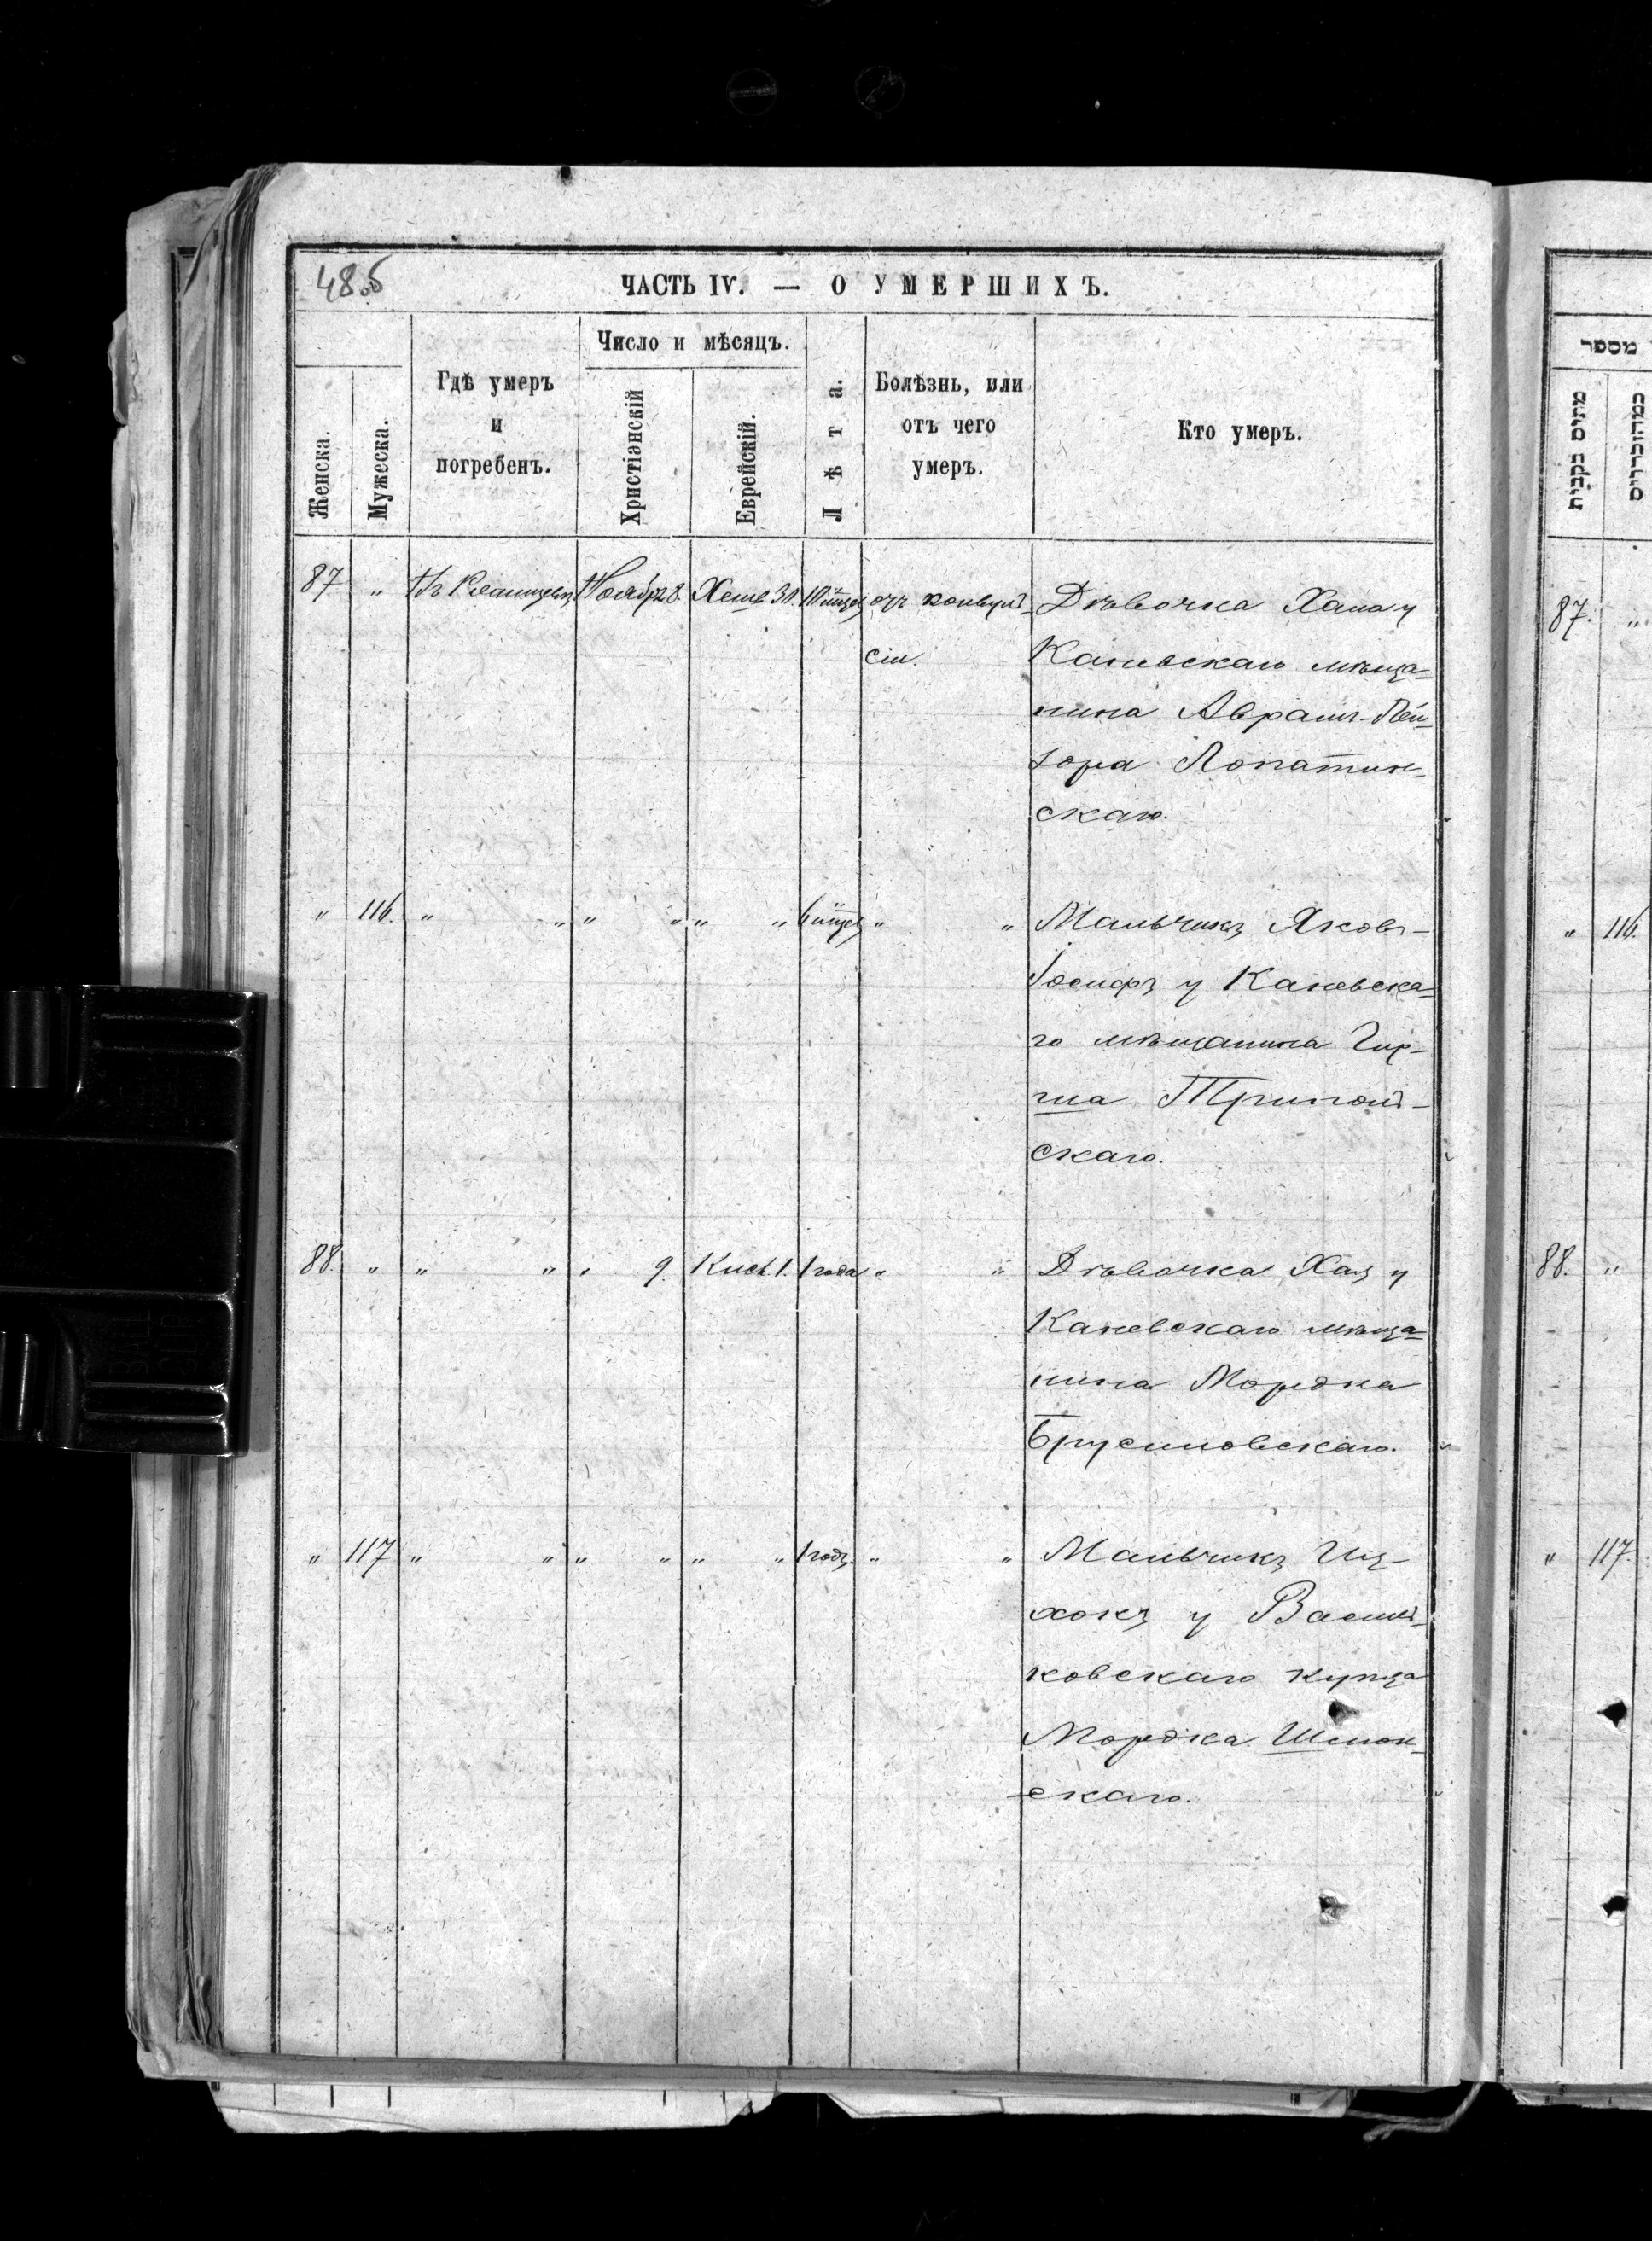 48об
ЧАСТЬ IV. — О УМЕРШИХЪ.
Женска.
Мужеска.
Гдѣ умеръ
и
погребенъ.
Число и мѣсяцъ.
Христіанскій
Еврейскій.
Лѣта.
Болѣзнь, или
отъ чего
умеръ.
Кто умеръ.
87 " Ноября 8. Хешв 30. 10 мѣсяц отъ конвуль- Дѣвочка Хана у
сіи. Каневскаго мѣща-
нина Аврамъ-Лей-
зора Лопатин-
скаго.
" 116. " " " " " " 6 мѣсяц " " Мальчикъ Яковъ-
Іосифъ у Каневска-
го мѣщанина Гир-
ша Триполь-
скаго.
88. " " " " 9. Кисл. 1. 1 года " " Дѣвочка Хая у
Каневскаго мѣща-
нина Мордка
Брусиловскаго.
" 117 " " " " " " 1 годъ. " " Мальчикъ Иц-
хокъ у Василь-
ковскаго купца
Мордка
скаго.
מספר
87. "
" 116.
88. "
" 117.